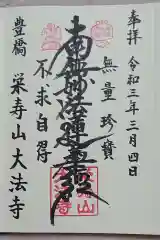 奉拝 令和三年三月四日
無量珍寶
南無妙法蓮華経
不求自得
豊橋 栄寿山大法寺